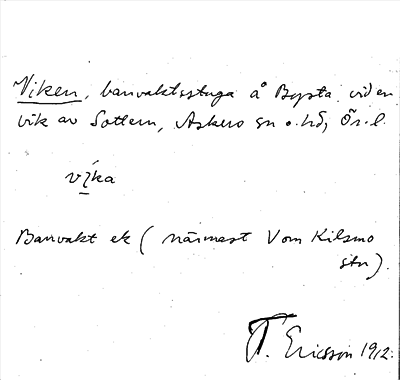 Viken, banvaktsstuga å Bysta vid en
vik av Sottern, Askers sn o. hd, Ör. l.
vı̨́ka
Banvakt ek (närmast V om Kilsmo
stn).
T. Ericsson 1912.